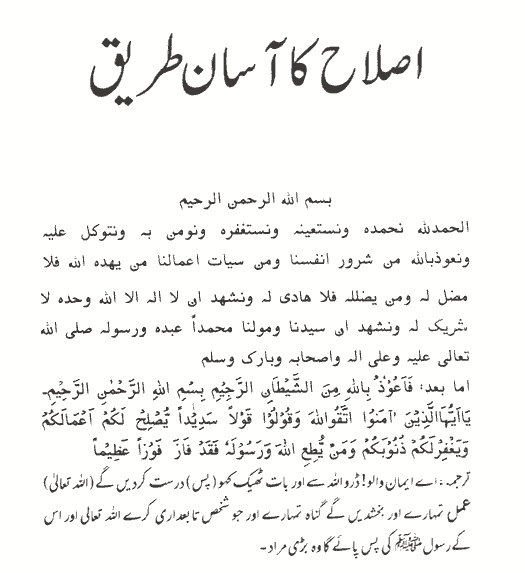 اصلاح کا آسان طریق
بسم الله الرحمن الرحیم
الحمدلله نحمدہ ونستعینہ ونستغفرہ ونومن بہ ونتوکل علیہ
ونعوذبالله من شرور انفسنا ومن سیات اعمالنا من یهدہ الله فلا
مضل لہ ومن یضللہ فلا هادی لہ ونشهد ان لا الہ الا الله وحدہ لا
شریک لہ ونشهد ان سیدنا ومولنا محمداً عبدہ ورسولہ صلی الله
تعالی علیہ وعلی الہ واصحابہ وبارک وسلم
اما بعد: فَاَعُوْذُ بِاللهِ مِنَ الشَّیْطَانِ الرَّجِیْمِ بِسْمِ اللهِ الرَّحْمٰنِ الرَّحِیْمِ۔
یَااَیُّهَاالَّذِیْنَ اٰمَنُوْا اتَّقُواللهَ وَقُوْلُوْا قَوْلاً سَدِیْداً یُّصْلِحْ لَکُمْ اَعْمَالَکُمْ
وَیَغْفِرْلَکُمْ ذُنُوْبَکُمْ وَمَنْ یُّطِعِ اللهَ وَرَسُوْلَہٗ فَقَدْ فَازَ فَوْزاً عَظِیْماً
ترجمہ: اے ایمان والو! ڈرو اللہ سے اور بات ٹھیک کہو (پس) درست کردیں گے (اللہ تعالیٰ)
عمل تمہارے اور بخشدیں گے گناہ تمہارے اور جو شخص تابعداری کرے اللہ تعالی اور اس
کے رسول ﷺ کی پس پائے گا وہ بڑی مراد۔